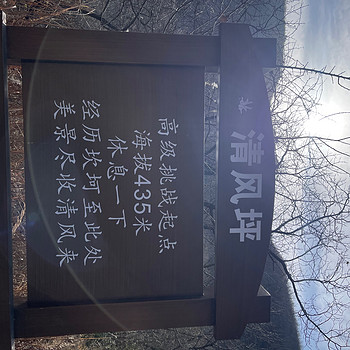 清风坪
高级挑战起点
海拔435米
休息一下
经历坎坷至此处
美景尽收清风来